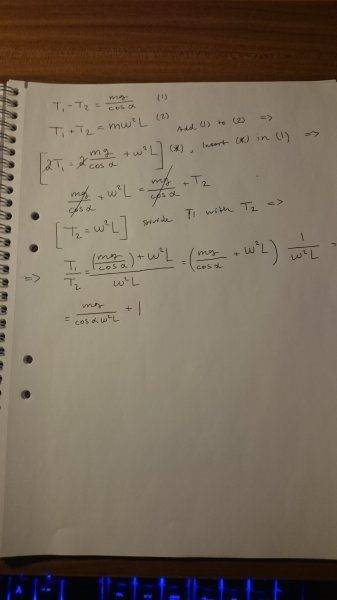 T₁ - T₂ = mg/cosα (1)
T₁ + T₂ = mω²L (2) Add (1) to (2) =>
[2T₁ = 2 mg/cosα + ω²L] (*), Insert (*) in (1) =>
mg/cosα + ω²L = mg/cosα + T₂
[T₂ = ω²L] Divide T1 with T₂ =>
=> T₁/T₂ = ((mg/cosα) + ω²L)/ω²L = (mg/cosα + ω²L) 1/ω²L =
= mg/cosαω²L + 1